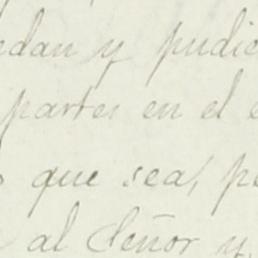 edan y pudie
partes en el e
que sea, pe
al Señor y